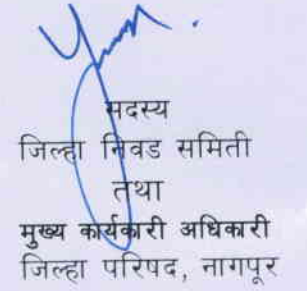 सदस्य
जिल्हा निवड समिती
तथा
मुख्य कार्यकारी अधिकारी
जिल्हा परिषद, नागपूर